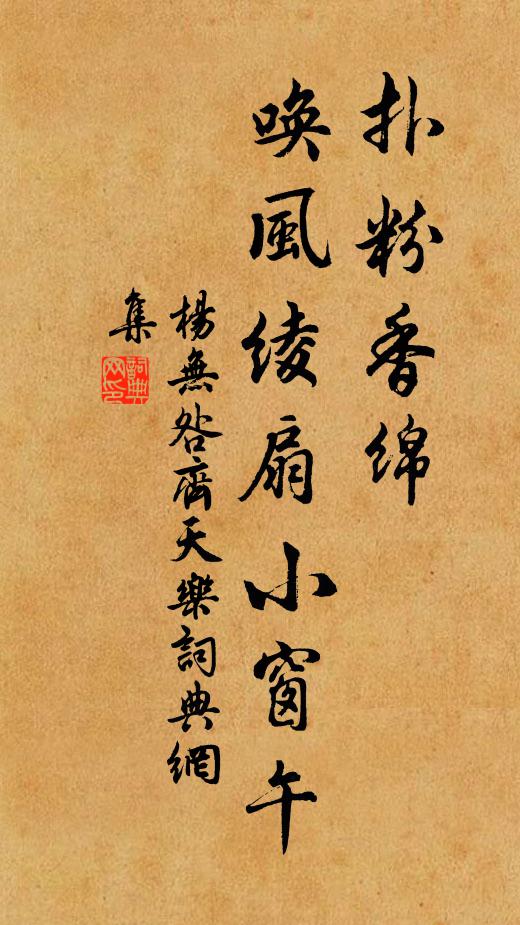 扑粉香绵
唤風绫扇小窗午
楊無咎齊天樂詞典網
集
詞典
网印